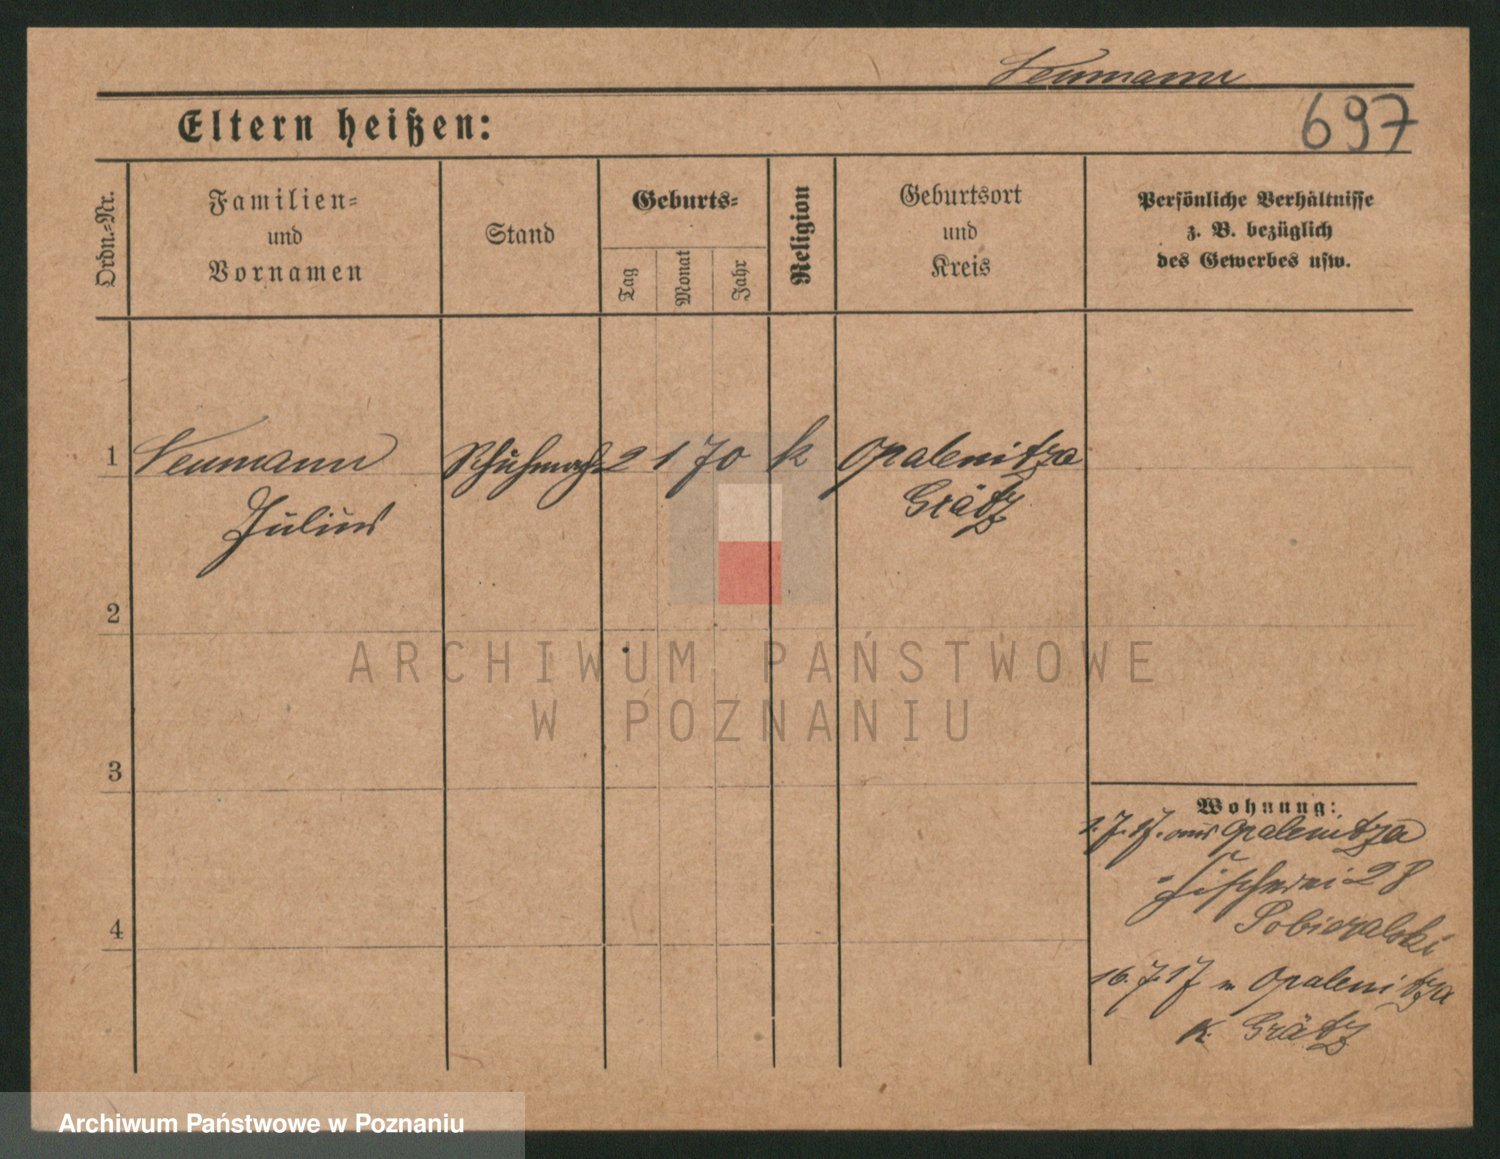 Neumann
Eltern heißen:
697
Ordn.-Nr.
Familien-
und
Vornamen
Stand
Geburts-
Tag
Monat
Jahr
Religion
Geburtsort
und
Kreis
Persönliche Verhältnisse
z. B. bezüglich
des Gewerbes usw.
1 Neumann Schuhmach. 2 1 70 k Opalenitza
Julius Grätz
2
3
4
Wohnung:
1.7.17. aus Opalenitza
Fischerei 28
Sobieralski
16.7.17 n Opalenitza
K. Grätz
ARCHIWUM PAŃSTWOWE
W POZNANIU
Archiwum Państwowe w Poznaniu